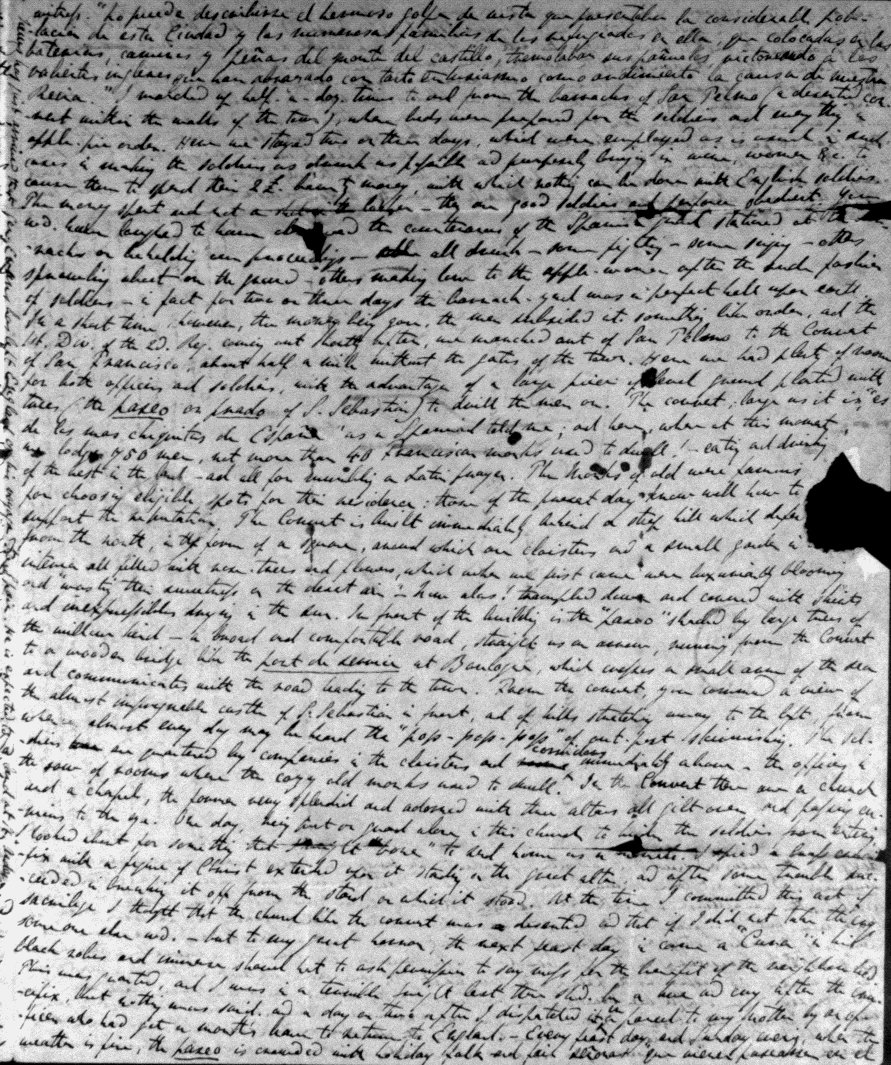 witness. "No puede describirse el hermoso golpe de vista que presentaban la considerable pob-
-lacion de esta Ciudad y las numerosas familias de los refugiados en ella, que colocadas en las
baterias, caminos y peñas del monte del castillo, tremolaban sus pañuelos, victoreando a los
valientes ingleses que han abrazado con tanto entusiasmo como ardimiento la causa de nuestra
Reina." I marched off half-a-doz. times to and from the barracks of San Telmo (a deserted con-
-vent within the walls of the town), where beds were prepared for the soldiers and every thing in
apple-pie order. Here we stayed two or three days, which were employed as is usual in such
cases in making the soldiers as drunk as possible and purposely bringing in wine, women &c. to
cause them to spend their 2£. bounty money, with which nothing can be done with English soldiers.
The money spent and not a shot in the locker - they are good soldiers and perforce obedient. You
wd. have laughed to have observed the countenances of the Spanish guard stationed at the bar-
-racks on beholding our proceedings - all drunk - some fighting - some singing - others
sprawling about on the ground - others making love to the apple-women after the rude fashion
of soldiers - in fact for two or three days the barrack-yard was a perfect hell upon earth.
In a short time, however, the money being gone, the men subsided into something like order, and the
1st. Div. of the 2d. Reg. coming out shortly after, we marched out of San Telmo to the Convent
of San Francisco, about half a mile without the gates of the town. Here we had plenty of room
for both officers and soldiers, with the advantage of a large piece of level ground planted with
trees (the paseo or prado of S. Sebastian) to drill the men on. The convent, large as it is, "es
de las mas chiquitas de España" as a Spaniard told me; and here, where at this moment,
we lodge 750 men, not more than 40 Franciscan monks used to dwell! - eating and drinking
of the best in the land - and all for mumbling a Latin prayer. The Monks of old were famous
for choosing eligible spots for their residence; those of the present day know well how to
support the reputation. The Convent is built immediately behind a steep hill which
from the north, in the form of a square, around which are cloisters and a small garden in
interior all filled with rose-trees and flowers, which when we first came were luxuriantly blooming
and "wasting their sweetness on the desert air" - now alas! trampled down and covered with shirts
and inexpressibles drying in the sun. In front of the building is the "paseo" shaded by large trees of
the willow kind - a broad and comfortable road, straight as an arrow, running from the Convent
to a wooden bridge like the pont de service at Boulogne, which crosses a small arm of the sea
and communicates with the road leading to the town. From the convent, you command a view of
the almost impregnable castle of S. Sebastian in front, and of hills stretching away to the left, from
where almost every day may be heard the "pop-pop-pop" of out-post skirmishing. The sol-
diers are quartered by companies in the cloisters and corridors immediately above - the officers in
the row of rooms where the cozy old monks used to dwell. In the Convent there are a church
and a chapel, the former very splendid and adorned with three altars all gilt over and passing
to the eye. One day, being put on guard alone in this church to hinder the soldiers from entering
I looked about for something that "bono" to send home as a memento. I spied a large cruci-
-fix with a figure of Christ extended upon it standing on the great altar, and after some trouble suc-
-ceeded in breaking it off from the stand on which it stood. At the time I committed this act of
sacrilege I thought that the church like the convent was deserted and that if I did not take the
someone else wd. - but to my great horror, the next feast day in came a "Cura" in his
black robes and immense shovel hat to ask permission to say mass for the benefit of the neighbourhood.
This was granted, and I was in a terrible fright lest there shd. be a hue and cry after the cru-
-cifix, but nothing was said, and a day or two after I dispatched it in a parcel to my Mother by an of-
-ficer who had got a month's leave to return to England. - Every feast day, and Sunday evening, when the
weather is fine, the paseo is crowded with holiday folk and fair señoras que vienen pasearse en el